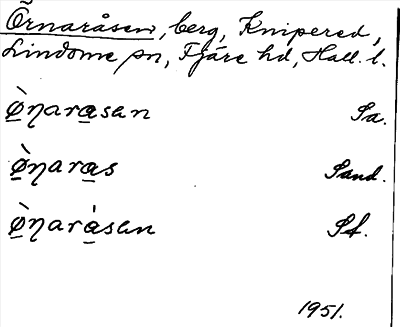 Örnaråsen, berg, Knipered,
Lindome sn, Fjäre hd, Hall. l.
ø̲̀ŋara̲san Sa.
ø̲̀ŋara̲s Sand.
ø̲̀ŋarà̲san Sf.
1951.